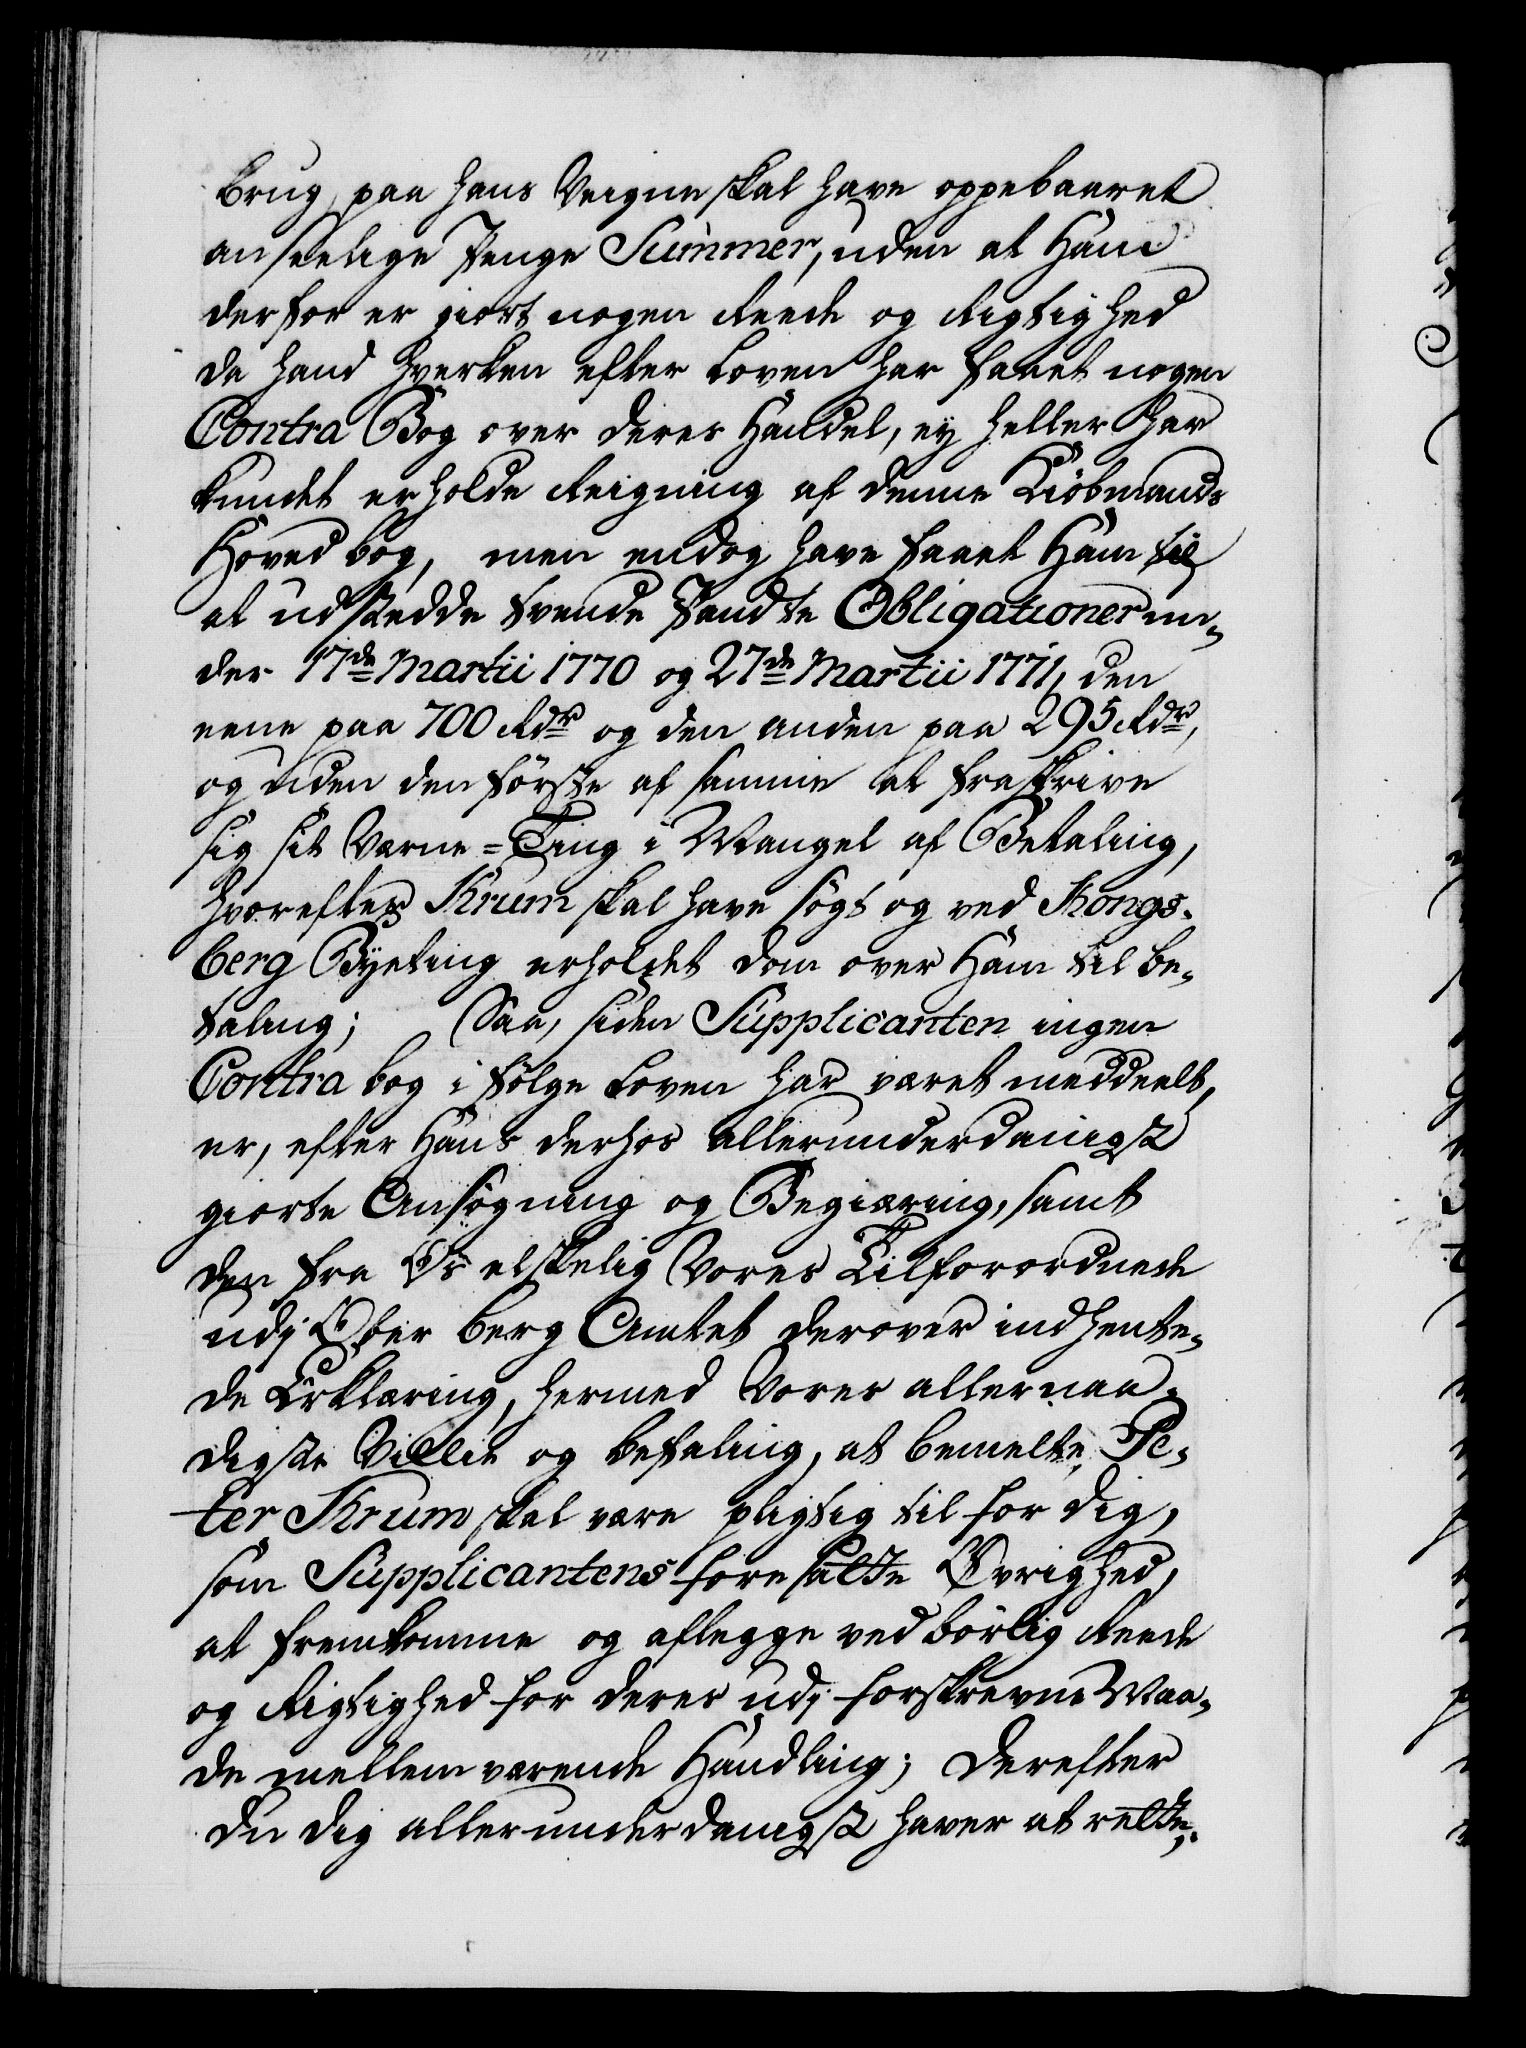 brug, paa hans Veigne skal have oppebaaret
anseelige Penge Summer, uden at Ham
derfor er giort nogen Reede og Rigtighed
da hand hverken efter Loven har faaet nogen
Contra Bog over deres Handel, ey heller har
kundet erholde Reigning af denne Kiöbmands
Hoved bog, men endog have faaet Ham til
at udstædde tvende Pandte Obligationer un-
der 17de Martii 1770 og 27de Martii 1771, den
eene paa 700 Rdr og den anden paa 295 Rdr,
og uden den förste af samme at fraskrive
sig sit Værne-Ting i Mangel af Betaling,
hvorefter Krum skal have sögt og ved Kongs-
berg Byeting erholdet dom over Ham til be-
taling; Saa, siden Supplicanten ingen
Contra bog i fölge Loven har været meddeelt,
er, efter Hans derhos allerunderdanigst
giorte Ansögning og Begiæring, samt
den fra Os elskelig Vores Tilforordnede
udj Ober berg Amtet derover indhente-
de Erklæring, hermed Vores allernaa-
digste Villie og befaling, at bemelte Pe-
ter Krum skal være pligtig til for dig,
som Supplicantens foresatte Övrighed,
at fremkomme og aflegge ved börlig Reede
og Rigtighed for deres udj forskrevne Maa-
de mellem værende Handling; Derefter
du dig allerunderdanigst haver at rette,